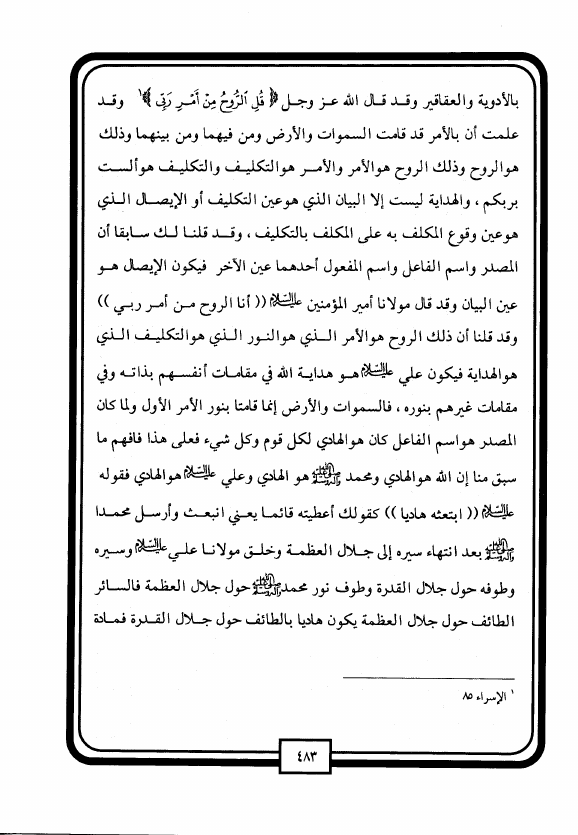 بالأدوية والعقاقير وقد قال الله عز وجل ﴿ قُلِ ٱلرُّوحُ مِنْ أَمْرِ رَبِّى ﴾١ وقد
علمت أن بالأمر قد قامت السموات والأرض ومن فيهما ومن بينهما وذلك
هوالروح وذلك الروح هوالأمر والأمر هوالتكليف والتكليف هوألست
بربكم ، والهداية ليست إلا البيان الذي هوعين التكليف أو الإيصال الذي
هوعين وقوع المكلف به على المكلف بالتكليف ، وقد قلنا لك سابقا أن
المصدر واسم الفاعل واسم المفعول أحدهما عين الآخر فيكون الإيصال هو
عين البيان وقد قال مولانا أمير المؤمنين عليه السلام (( أنا الروح من أمر ربي ))
وقد قلنا أن ذلك الروح هوالأمر الذي هوالنور الذي هوالتكليف الذي
هوالهداية فيكون علي عليه السلام هو هداية الله في مقامات أنفسهم بذاته وفي
مقامات غيرهم بنوره ، فالسموات والأرض إنما قامتا بنور الأمر الأول ولما كان
المصدر هواسم الفاعل كان هوالهادي لكل قوم وكل شيء فعلى هذا فافهم ما
سبق منا إن الله هوالهادي ومحمد صلى الله عليه وآله وسلم هو الهادي وعلي عليه السلام هوالهادي فقوله
عليه السلام (( ابتعثه هاديا )) كقولك أعطيته قائما يعني انبعث وأرسل محمدا
صلى الله عليه وآله وسلم بعد انتهاء سيره إلى جلال العظمة وخلق مولانا علي عليه السلام وسيره
وطوفه حول جلال القدرة وطوف نور محمد صلى الله عليه وآله وسلم حول جلال العظمة فالسائر
الطائف حول جلال العظمة يكون هاديا بالطائف حول جلال القدرة فمادة
١ الإسراء ٨٥
٤٨٣